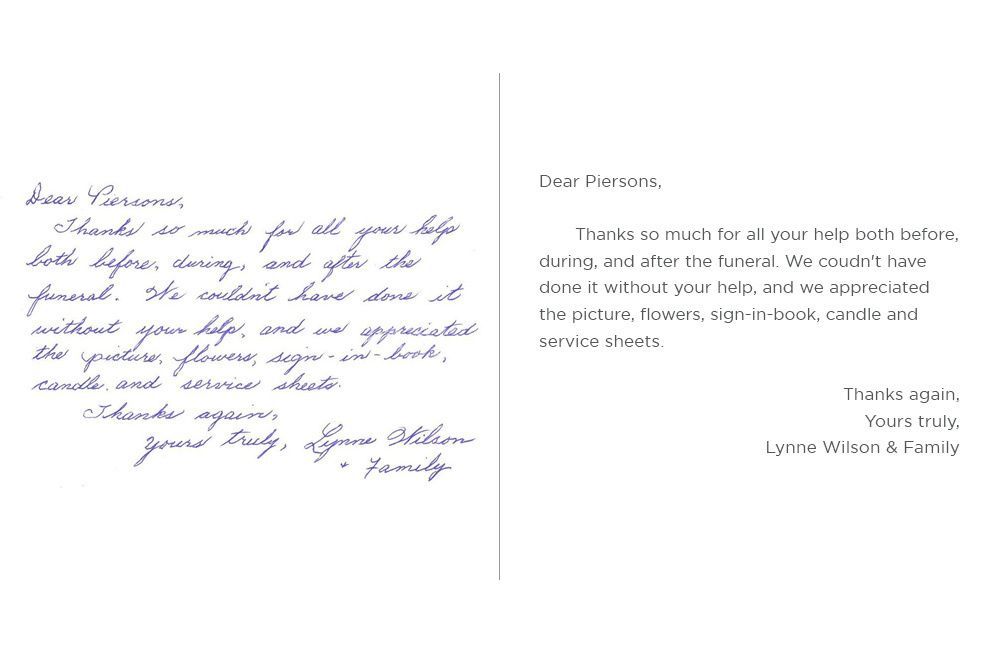 Dear Piersons,
Thanks so much for all your help
both before, during, and after the
funeral. We couldn't have done it
without your help, and we appreciated
the picture, flowers, sign-in-book,
candle, and service sheets.
Thanks again,
Yours truly, Lynne Wilson
+ Family
Dear Piersons,
Thanks so much for all your help both before,
during, and after the funeral. We coudn't have
done it without your help, and we appreciated
the picture, flowers, sign-in-book, candle and
service sheets.
Thanks again,
Yours truly,
Lynne Wilson & Family